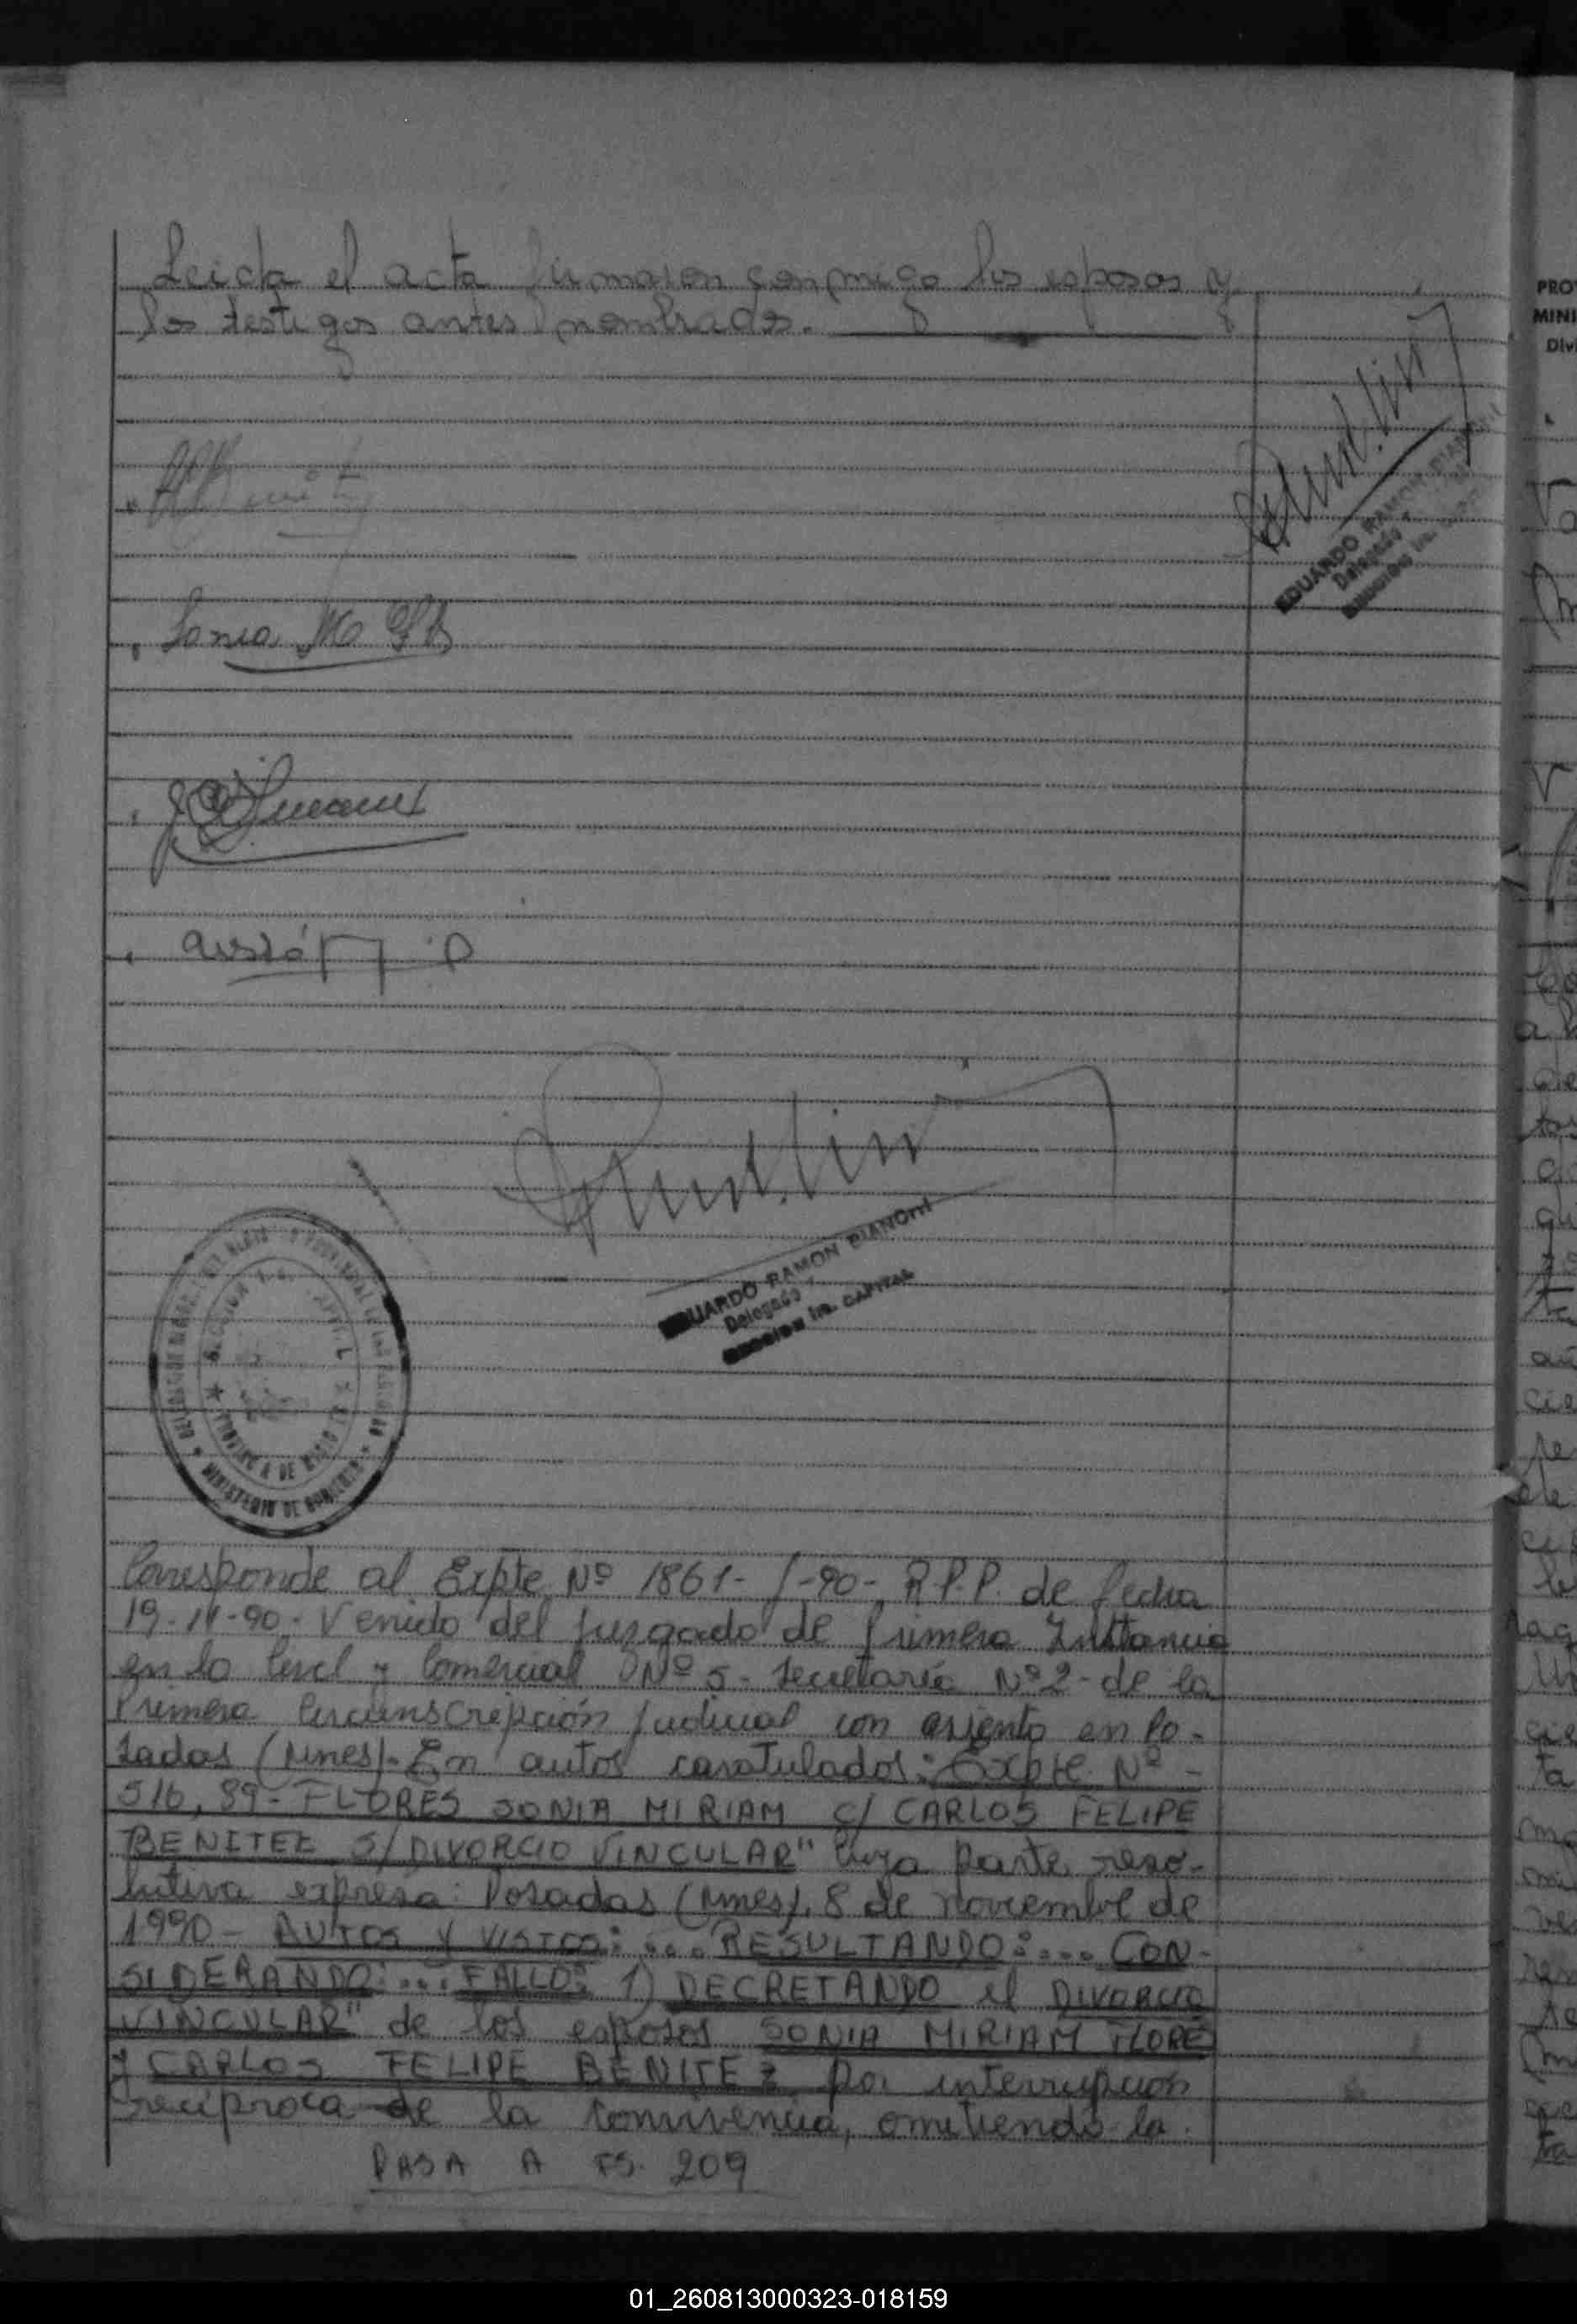 Leida el acta firmaron conmigo los esposos y
los testigos antes nombrados.
EDUARDO RAMON PIANONI
Delegado
Sonia M
EDUARDO RAMON PIANONI
Delegado
SECCION 1ra. CAPITAL
MINISTERIO DE GOBIERNO
Corresponde al Expte Nº 1861- f-90- R.P.P. de fecha
19-11-90- Venido del Juzgado de Primera Instancia
en lo Civil y Comercial Nº 5- Secretaría Nº 2- de la
Primera Circunscripción Judicial con asiento en Po-
sadas (Mnes)- En autos caratulados: Expte Nº -
516, 89- FLORES SONIA MIRIAM C/ CARLOS FELIPE
BENITEZ S/ DIVORCIO VINCULAR" Cuya parte reso-
lutiva expresa: Posadas (Mnes), 8 de noviembre de
1990- AUTOS Y VISTOS: ... RESULTANDO: .... CON-
SIDERANDO: ... FALLO: 1) DECRETANDO el DIVORCIO
VINCULAR" de los esposos SONIA MIRIAM FLORE
y CARLOS FELIPE BENITEZ por interrupción
recíproca de la convivencia, omitiendo la
PASA A FS. 209
PRO
MINI
Divi
01_260813000323-018159